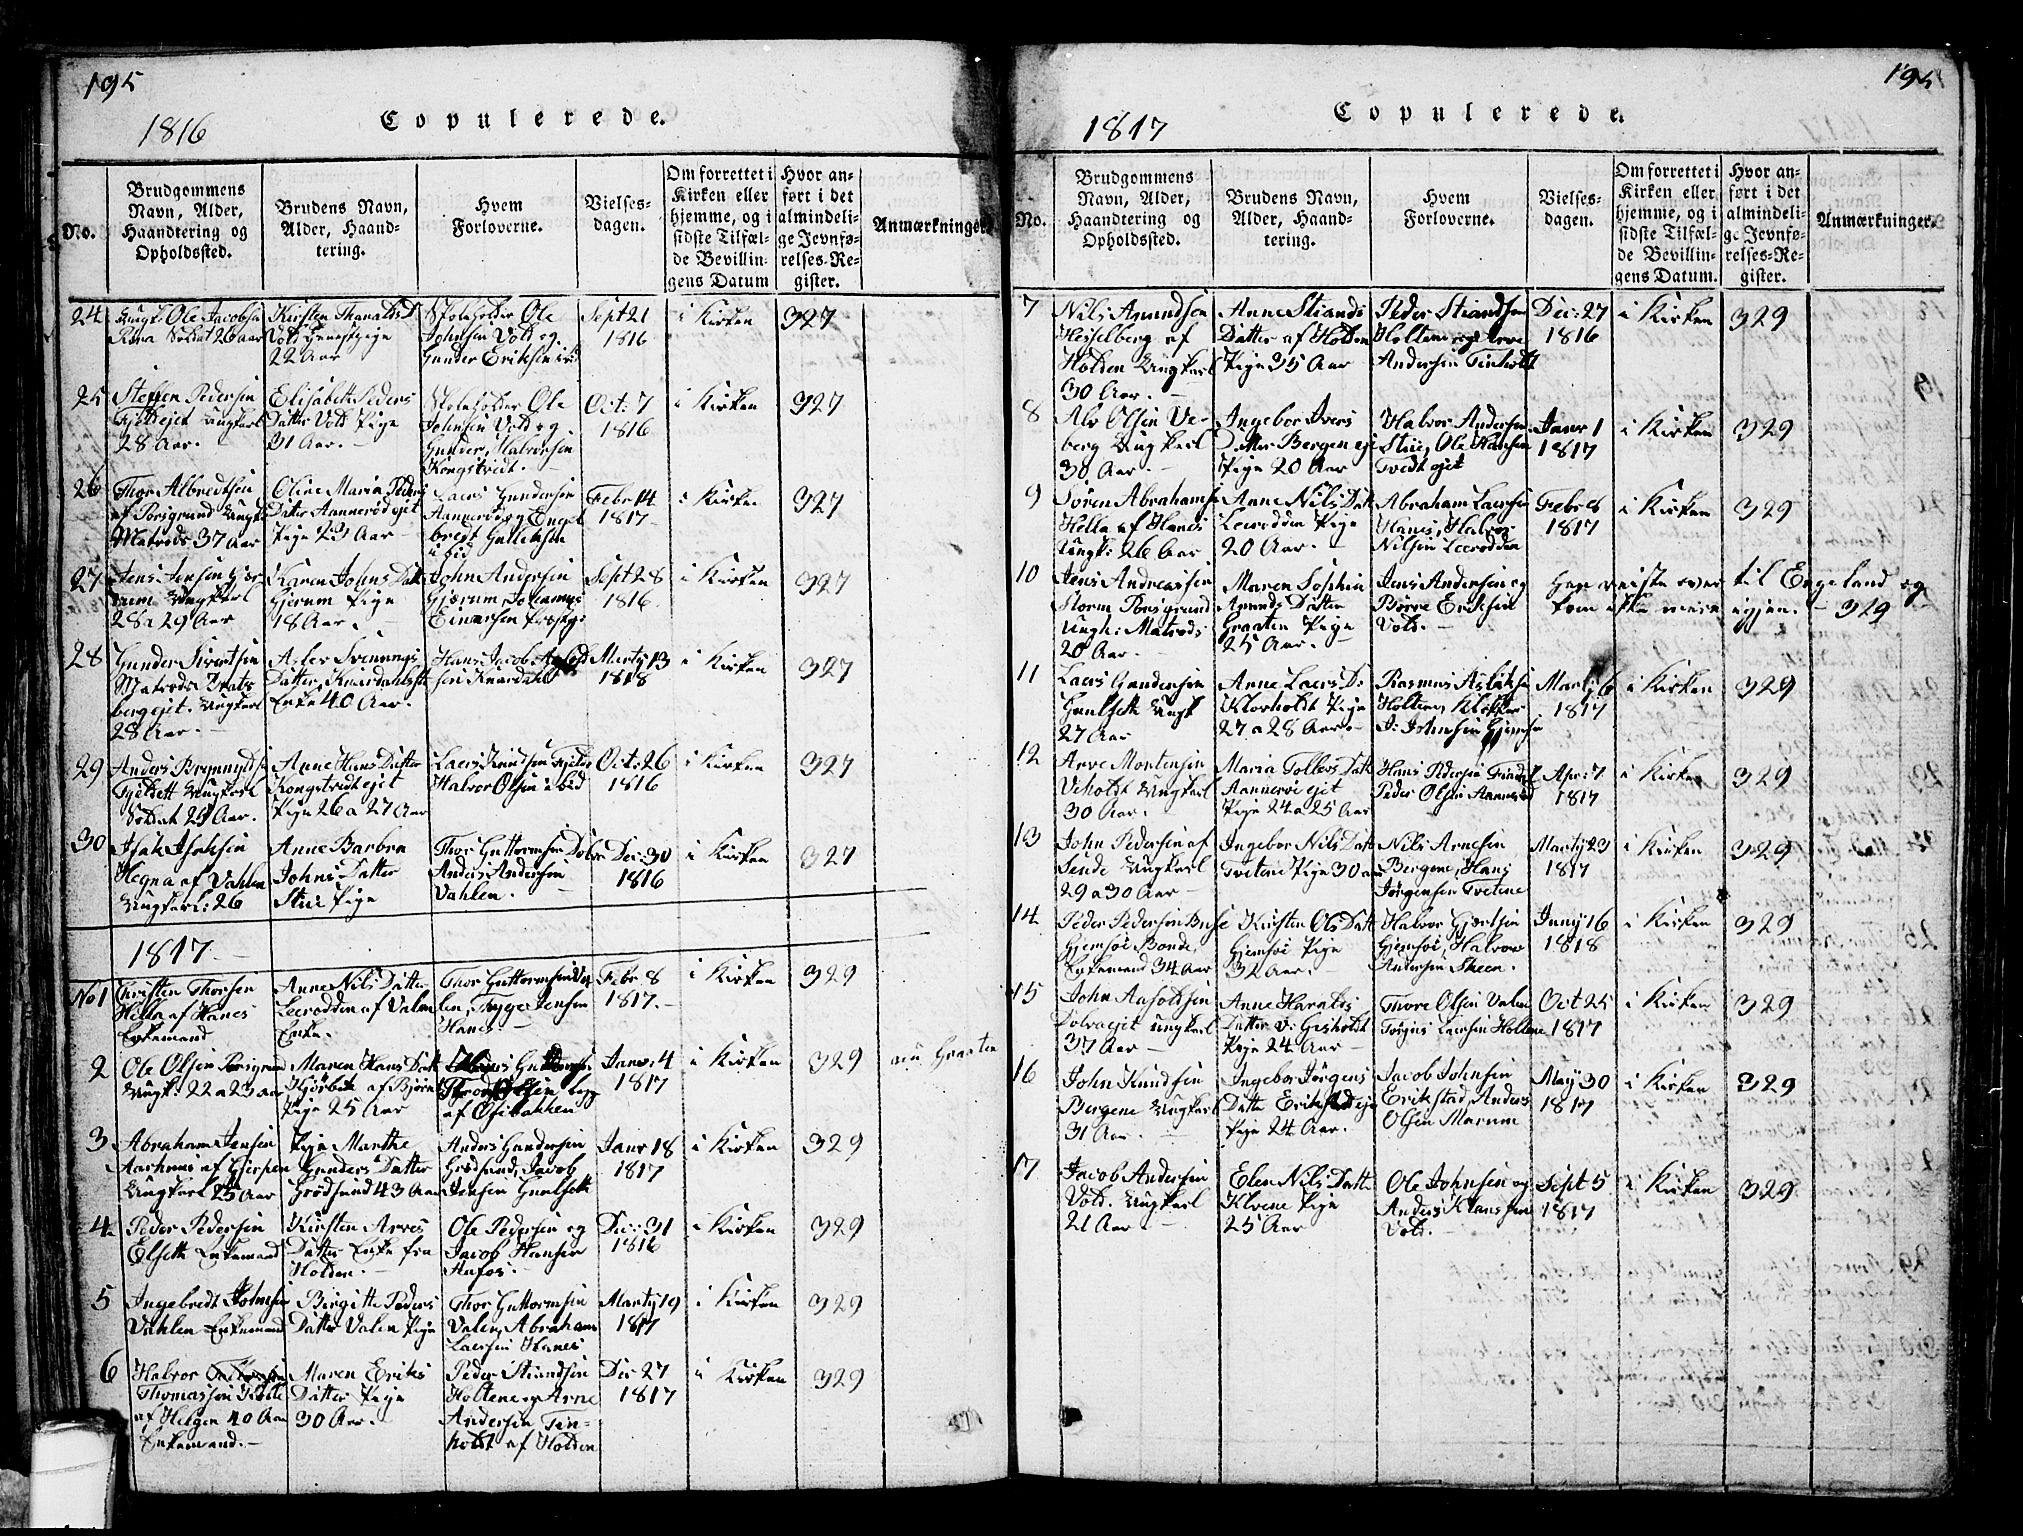 195
1816
Copulerede.
No.
Brudgommens
Navn, Alder,
Haandtering og
Opholdssted.
Brudens Navn,
Alder, Haand-
tering.
Hvem
Forloverne.
Vielses-
dagen.
Om forrettet i
Kirken eller
hjemme, og i
sidste Tilfæl-
de Bevillin-
gens Datum
Hvor an-
ført i det
almindeli-
ge Jevnfø-
relses-Re-
gister.
Anmærkninger.
24
Ungk: Ole Jacobsen
Soldat 26 aar
Kirsten
Vold Pige
22 Aar
Skoleholder Ole
Johnsen Vold og
Gunder Eriksen
Sept 21
1816
i Kirken
327
25
Steffen Pedersen
Fjeldejet Ungkarl
28 Aar.
Elisabeth Peders
Datter Vold Pige
31 Aar.
Skoleholder Ole
Johnsen Vold og
Gunder Halvorsen
Kongstvedt.
Oct: 7
1816
i Kirken
327
26
Thor Albredtsen
af Porsgrund Ungk:
Matros 37 Aar
Oline Maria Peders
Datter Aannerød ejet
Pige 23 Aar
Laers Gundersen
Aannerød og Engel
bregt Gulleksen
ibid
Febr 14
1817
i Kirken
327
27
Jens Jensen Gjer-
um Ungkarl
28 a 29 Aar
Karen Johns Datt
Gjerum Pige
18 Aar.
John Andersen
Gjerum, Johannes
Einersen
Sept 28
1816.
i Kirken
327
28
Gunder Sivertsen
Matros Brats
berg ejet. Ungkarl
28 Aar.
Aslev Svennings
Datter, Knardahlstr
Enke 40 Aar.
Hans Jacob
sen Knardahl
Marty 13
1818
i Kirken
327
29
Anders Brynnyldsen
Fjeldett Ungkarl
Soldat 25 Aar.
Anne Hans Datter
Kongstvedt ejet
Pige 26 a 27 Aar
Laers Knudsen
Halvor Olsen ibid
Oct: 26
1816
i Kirken
327
30
Isak Isaksen
Hegna af Vahlen
Ungkarl: 26
Anne Barbra
Johns Datter
Stue Pige
Thor Guttormsen
Anders Andersen
Vahlen.
Dec: 30
1816
i Kirken
327
1817.
No 1
Christen Thorsen
Hella af Hanes
Enkemand
Anne Nils Datter
Leerodden af Valen
Enke.
Thor Guttormsen Va
len, Tygge Jensen
Hanes
Febr 8
1817.
i Kirken
329
2
Ole Olsen Porsgrund
Ungk: 22 a 23 aar
Maren Hans Datt
Hjørbek af Bjørn
Pige 25 Aar
af Osebakken
Janv: 4
1817
i Kirken
329
nu Graaten
3
Abraham Jensen
Aarhuus af Gjerpen
Ungkarl 25 Aar
Pige Marthe
Gunders Datter
Grødsund 43 Aar
Anders Gundersen
Grødsund, Jacob
Jensen Gunlseth
Janv 18
1817
i Kirken
329
4.
Peder Pedersen
Elseth Enkemand
Kirsten Arves
Datter Enke fra
Holden.
Ole Pedersen og
Jacob Hansen
Aafos.
Dec: 31
1816
i Kirken
329
5
Ingebredt Johnsen
Vahlen Enkemand
Birgitte Peders
Datter Valen Pige
Thor Guttormsen
Valen, Abraham
Laersen Hanes
Marty 19
1817
i Kirken
329
6
Halvor
Thomassen
af Helgen 40 Aar
Enkemand.
Maren Eriks
Datter Pige
30 Aar.
Peder Stiandsen
Holtene og Arne
Andersen Tin-
holdt af Holden
Dec 27
1817
i Kirken
329
195
1817
Copulerede.
No.
Brudgommens
Navn, Alder,
Haandtering og
Opholdssted.
Brudens Navn,
Alder, Haand-
tering.
Hvem
Forloverne.
Vielses-
dagen.
Om forrettet i
Kirken eller
hjemme, og i
sidste Tilfæl-
de Bevillin-
gens Datum.
Hvor an-
ført i det
almindeli-
ge Jevnfø-
relses-Re-
gister.
Anmærkninger.
7
Nils Amundsen
Hesselberg af
Holden Ungkarl
30 Aar.
Anne Stiands
Datter af Holden
Pige 35 Aar
Peder Stiandsen
Holtene og Arve
Andersen Tinholt
Dec: 27
1816
i Kirken
329
8
Alv Olsen Ve-
berg Ungkarl
30 Aar.
Ingebor Ivers
Datter Bergen ejet
Pige 20 Aar
Halvor Andersen
Stue, Ole Hansen
Tvedt ejet
Janv 1
1817
i Kirken
329
9
Søren Abrahamsen
Hella af Hanes
Ungk: 26 Aar
Anne Nils Datt
Leerodden Pige
20 Aar.
Abraham Laersen
Hanes, Halvor
Nilsen Leerodden
Febr 8
1817
i Kirken
329
10
Jens Andreassen
Storm Porsgrund
Ungk: Matros
20 Aar.
Maren Sophia
Amunds Datter
Graaten Pige
25 Aar.
Jens Andersen og
Børre Eriksen
Vold.
Han reiste over til Engeland og
kom ikke mere igjen. — 329
11
Laers Gundersen
Gunlseth Ungk
27 Aar
Anne Laers D:
Klovholdt Pige
27 a 28 Aar.
Rasmus Aslaksen
Holtene, Klokker
J: Johnsen Gjemsøe
Marty 6
1817
i Kirken
329
12
Arve Mortensen
Veholdt Ungkarl
30 Aar.
Maria Tollevs Datt
Aannerøe ejet
Pige 24 a 25 Aar
Hans Pedersen
Peder Olsen Aannerød
Apr: 7
1817
i Kirken
329
13
John Pedersen af
Sende Ungkarl
29 a 30 Aar
Ingebor Nils Datt
Tvetene Pige 30 aar
Nils Arnesen
Bergene, Hans
Jørgensen Tvetene
Marty 23
1817
i Kirken
329
14
Peder Pedersen Buse
Gjemsøi Bonde
Enkemand 34 Aar
Kirsten Ols Datt
Gjemsøi Pige
32 Aar.
Halvor Gjertsen
Gjemsøi, Halvor
Andersen Skeen.
Juny 16
1818
i Kirken
329
15
John Aasoldsen
Dolva ejet Ungkarl
37 Aar
Anne Haralds
Datter v: Gisholdt
Pige 24 Aar
Thore Olsen Valen
Torgius Laersen Holtene
Oct 25
1817
i Kirken
329
16
John Knudsen
Bergene Ungkarl
31 Aar.
Ingebor Jørgens
Datter Erikstad ejet
Pige 24 Aar.
Jacob Johnsen
Erikstad, Anders
Olsen Marum
May 30
1817
i Kirken
329
17
Jacob Andersen
Vold. Ungkarl
21 Aar
Elen Nils Datt
Klvene Pige
25 Aar
Ole Johnsen og
Anders Klausen
Vold.
Sept 5
1817
i Kirken
329